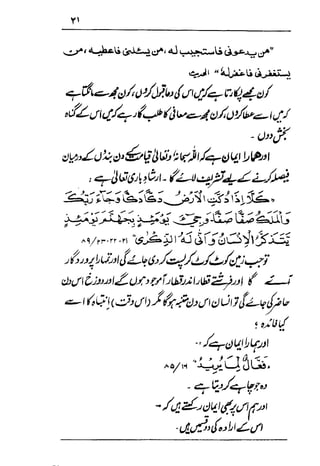 ۳۱
"من یدعونی فاستجیب له، من یسئلنی فاعطیه، من
یستغفرنی فاغفرله" الحدیث
کون مجھے پکارتا ہے کہ میں اس کی دعا قبول کروں، کون مجھ سے مانگتا ہے
کہ میں اسے عطا کروں، کون مجھ سے معافی کا طلب گار ہے کہ میں اس کے گناہ
بخش دوں۔
اور ہمارا ایمان ہے کہ اللہ سبحانہٗ وتعالیٰ قیامت کے دن بندوں کے درمیان
فیصلہ کرنے کے لیے تشریف لائے گا۔ ارشاد باری تعالیٰ ہے:
"كَلَّا إِذَا دُكَّتِ الْاَرْضُ دَكًّا دَكًّا وَجَاءَ رَبُّكَ
وَالْمَلَكُ صَفًّا صَفًّا وَجِيْءَ يَوْمَئِذٍ بِجَهَنَّمَ يَوْمَئِذٍ
يَتَذَكَّرُ الْاِنْسَانُ وَاَنّٰى لَهُ الذِّكْرٰى" ۲۱۔۲۲۔۲۳/۸۹
تو جب زمین کوٹ کوٹ کر پست کر دی جائے گی اور تمہارا پروردگار
آئے گا اور فرشتے قطار اندر قطار آموجود ہوں گے اور دوزخ اس دن
حاضر کی جائے گی تو انسان اس دن متنبہ ہوگا مگر (اس وقت) انتباہ کا اسے
کیا فائدہ؟
اور ہمارا ایمان ہے کہ:
"فَعَّالٌ لِّمَا يُرِيْدُ" ۱۶/۸۵
وہ جو چاہے کر دیتا ہے۔
اور ہم اس پر بھی ایمان رکھتے ہیں کہ۔
اس کے ارادہ کی دو قسمیں ہیں۔